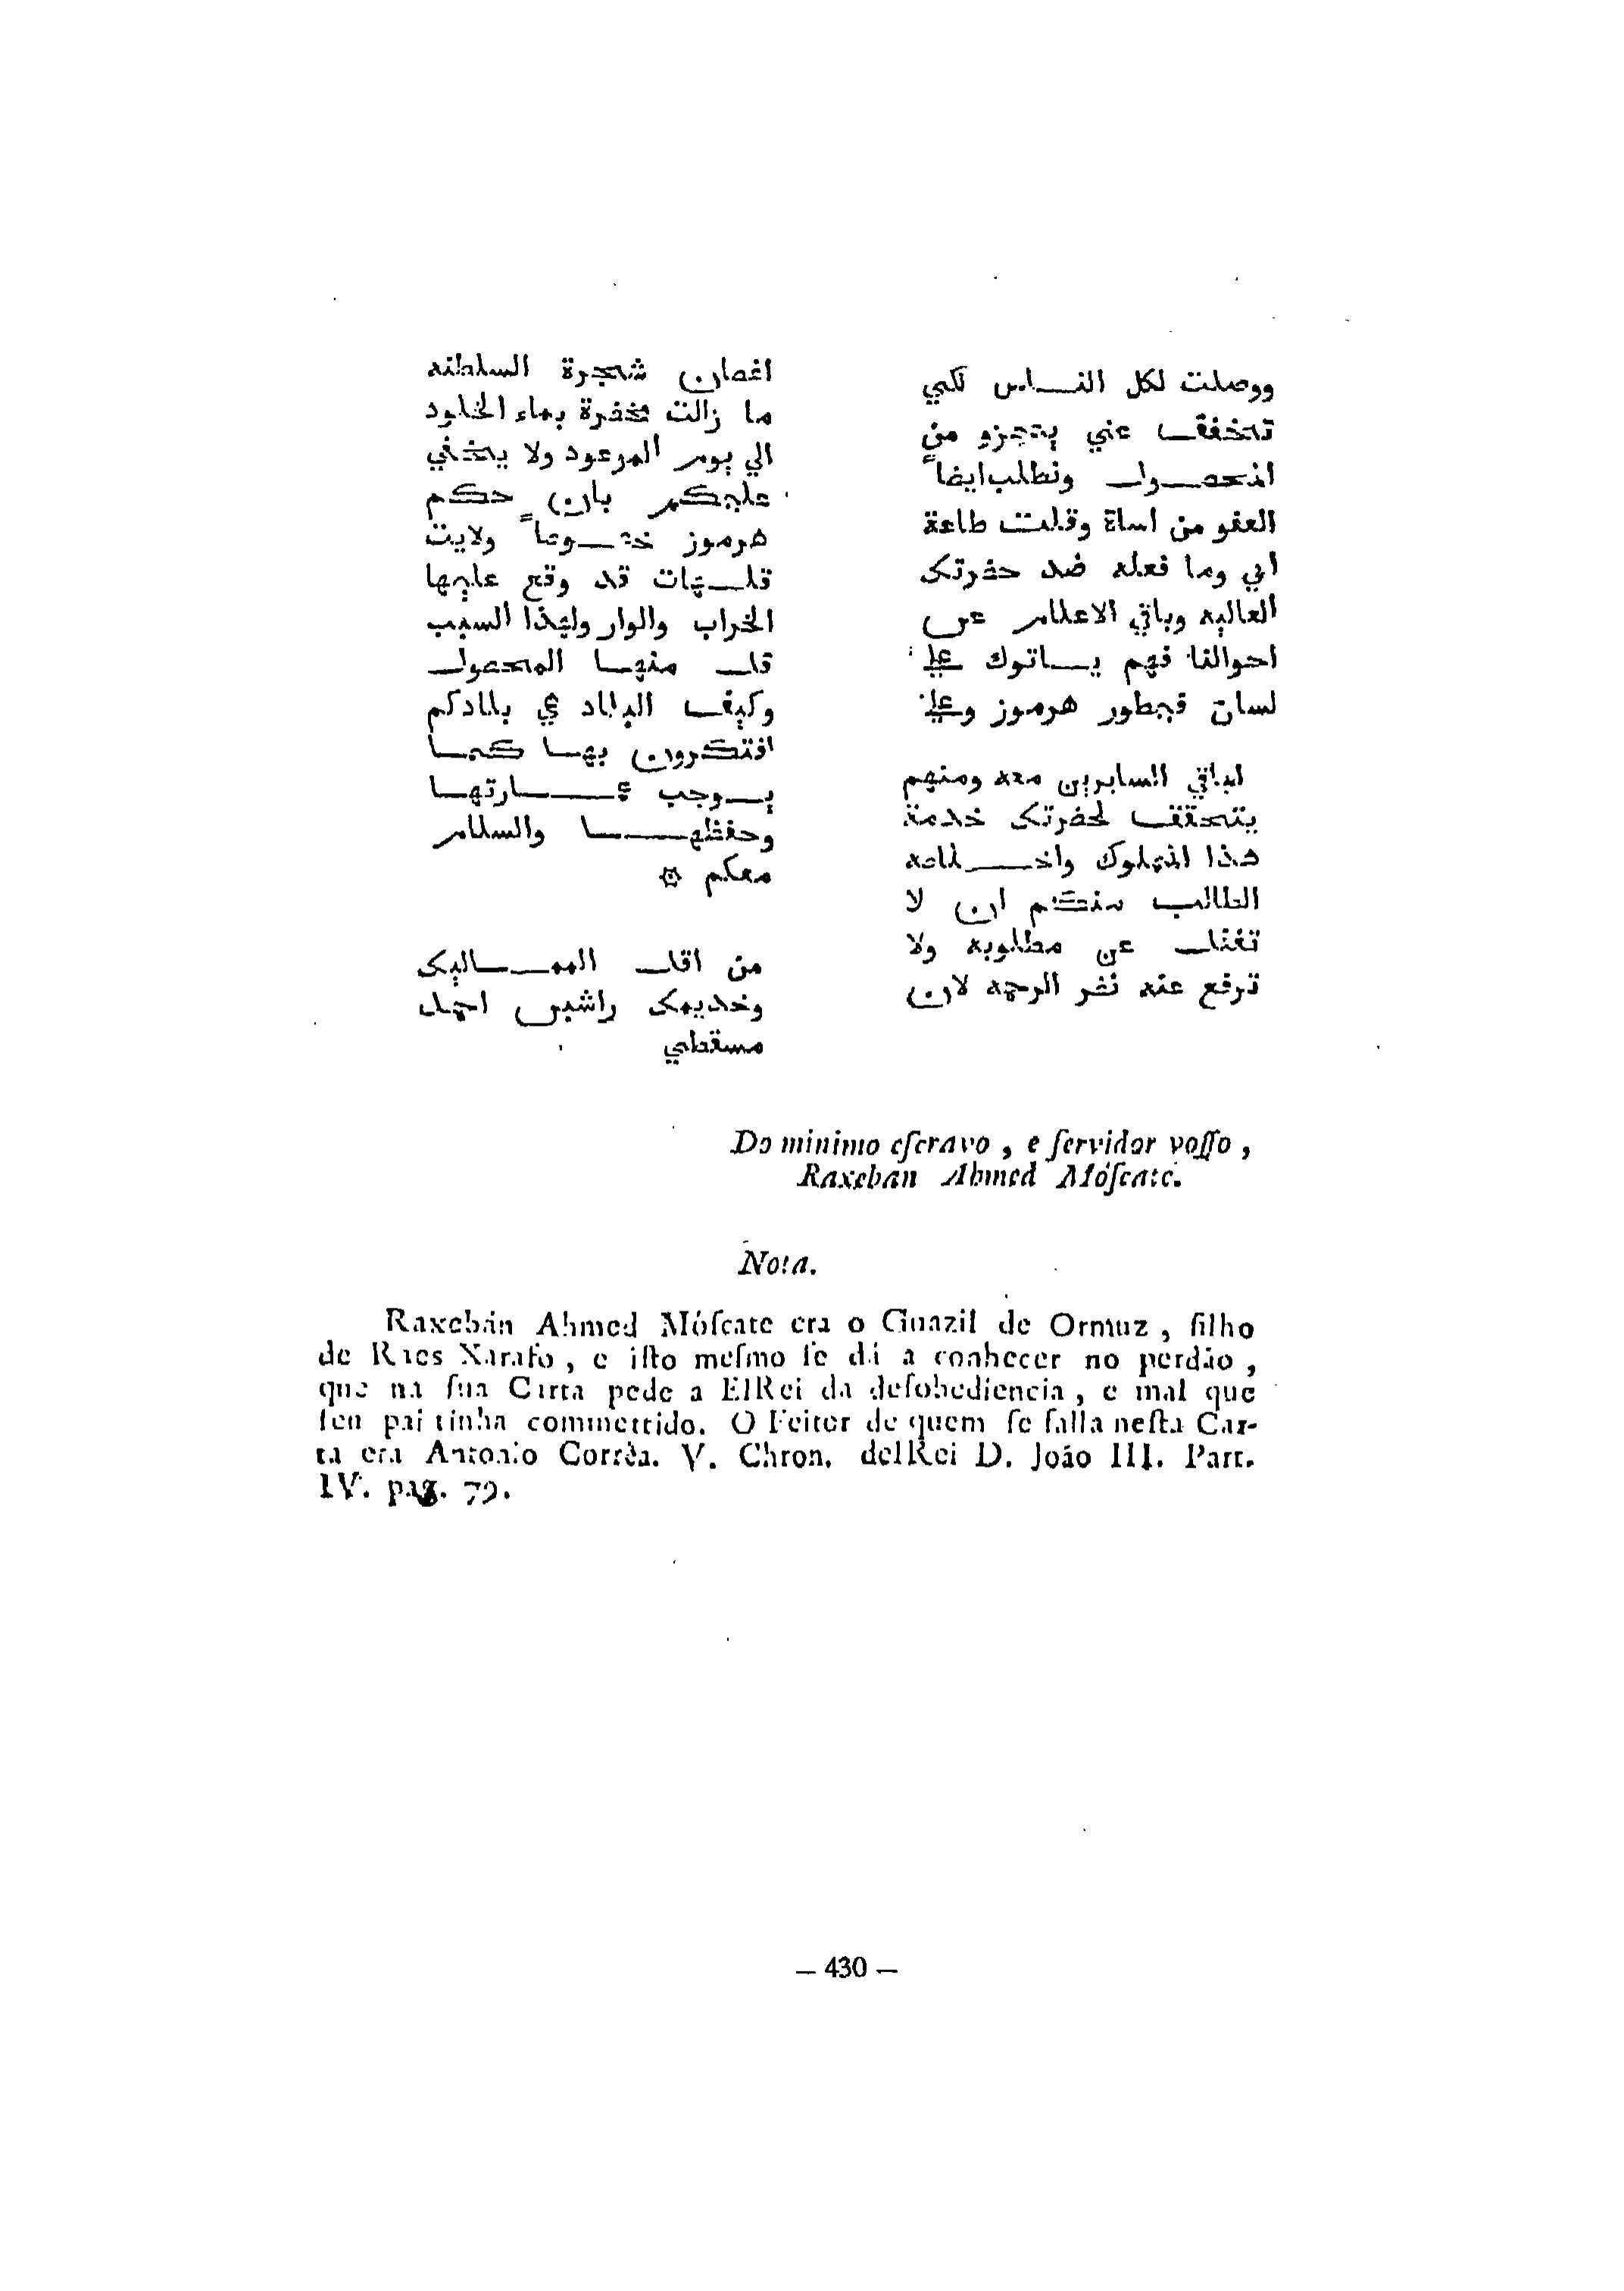 ووصلت لكل النـــاس لكي
تتخفف عني بتجزو من
المحصول ونطلب ايضاً
العفو من اساة وقلت طاعة
ابي وما فعله ضد حضرتك
العاليه وباقي الاعلام عن
احوالنا فهم يـــاتوك علي
لسان قبطور هرموز وعلي
لباقي السايرين معه ومنهم
يتحقق لحضرتك خدمة
هذا المملوك واخـــلاصه
الطالب منكم ان لا
تغفل عن مطلوبه ولا
ترفع عنه نضر الرحمه لان
اغصان شجرة السلطنه
ما زالت مخضرة بماء الخلود
الي يوم الموعود ولا يخفي
عليكم بان حكم
هرموز خصوصاً ولايت
قلـــهات قد وقع عليها
الخراب والوار ولهذا السبب
قل منها المحصول
وكيف البلاد هي بلادكم
افتكرون بهـا كمـا
يـــوجب عمـــارتهـا
وحفظهـــا والسلام
معكم ۞
من اقل الممـــاليك
وخديمك راشبن احمد
مسقطي
Do minimo eſcravo , e ſervidor voſſo ,
Raxebán Ahmed Móſcate.
Nota.
Raxebán Ahmed Móſcate era o Guazil de Ormuz , filho
de Raes Xarafo , e iſto meſmo ſe dá a conhecer no perdão ,
que na ſua Carta pede a ElRei da deſobediencia , e mal que
ſeu pai tinha commettido. O Feitor de quem ſe falla neſta Car-
ta era Antonio Corrêa. V. Chron. delRei D. João III. Part.
IV. pag. 79.
— 430 —